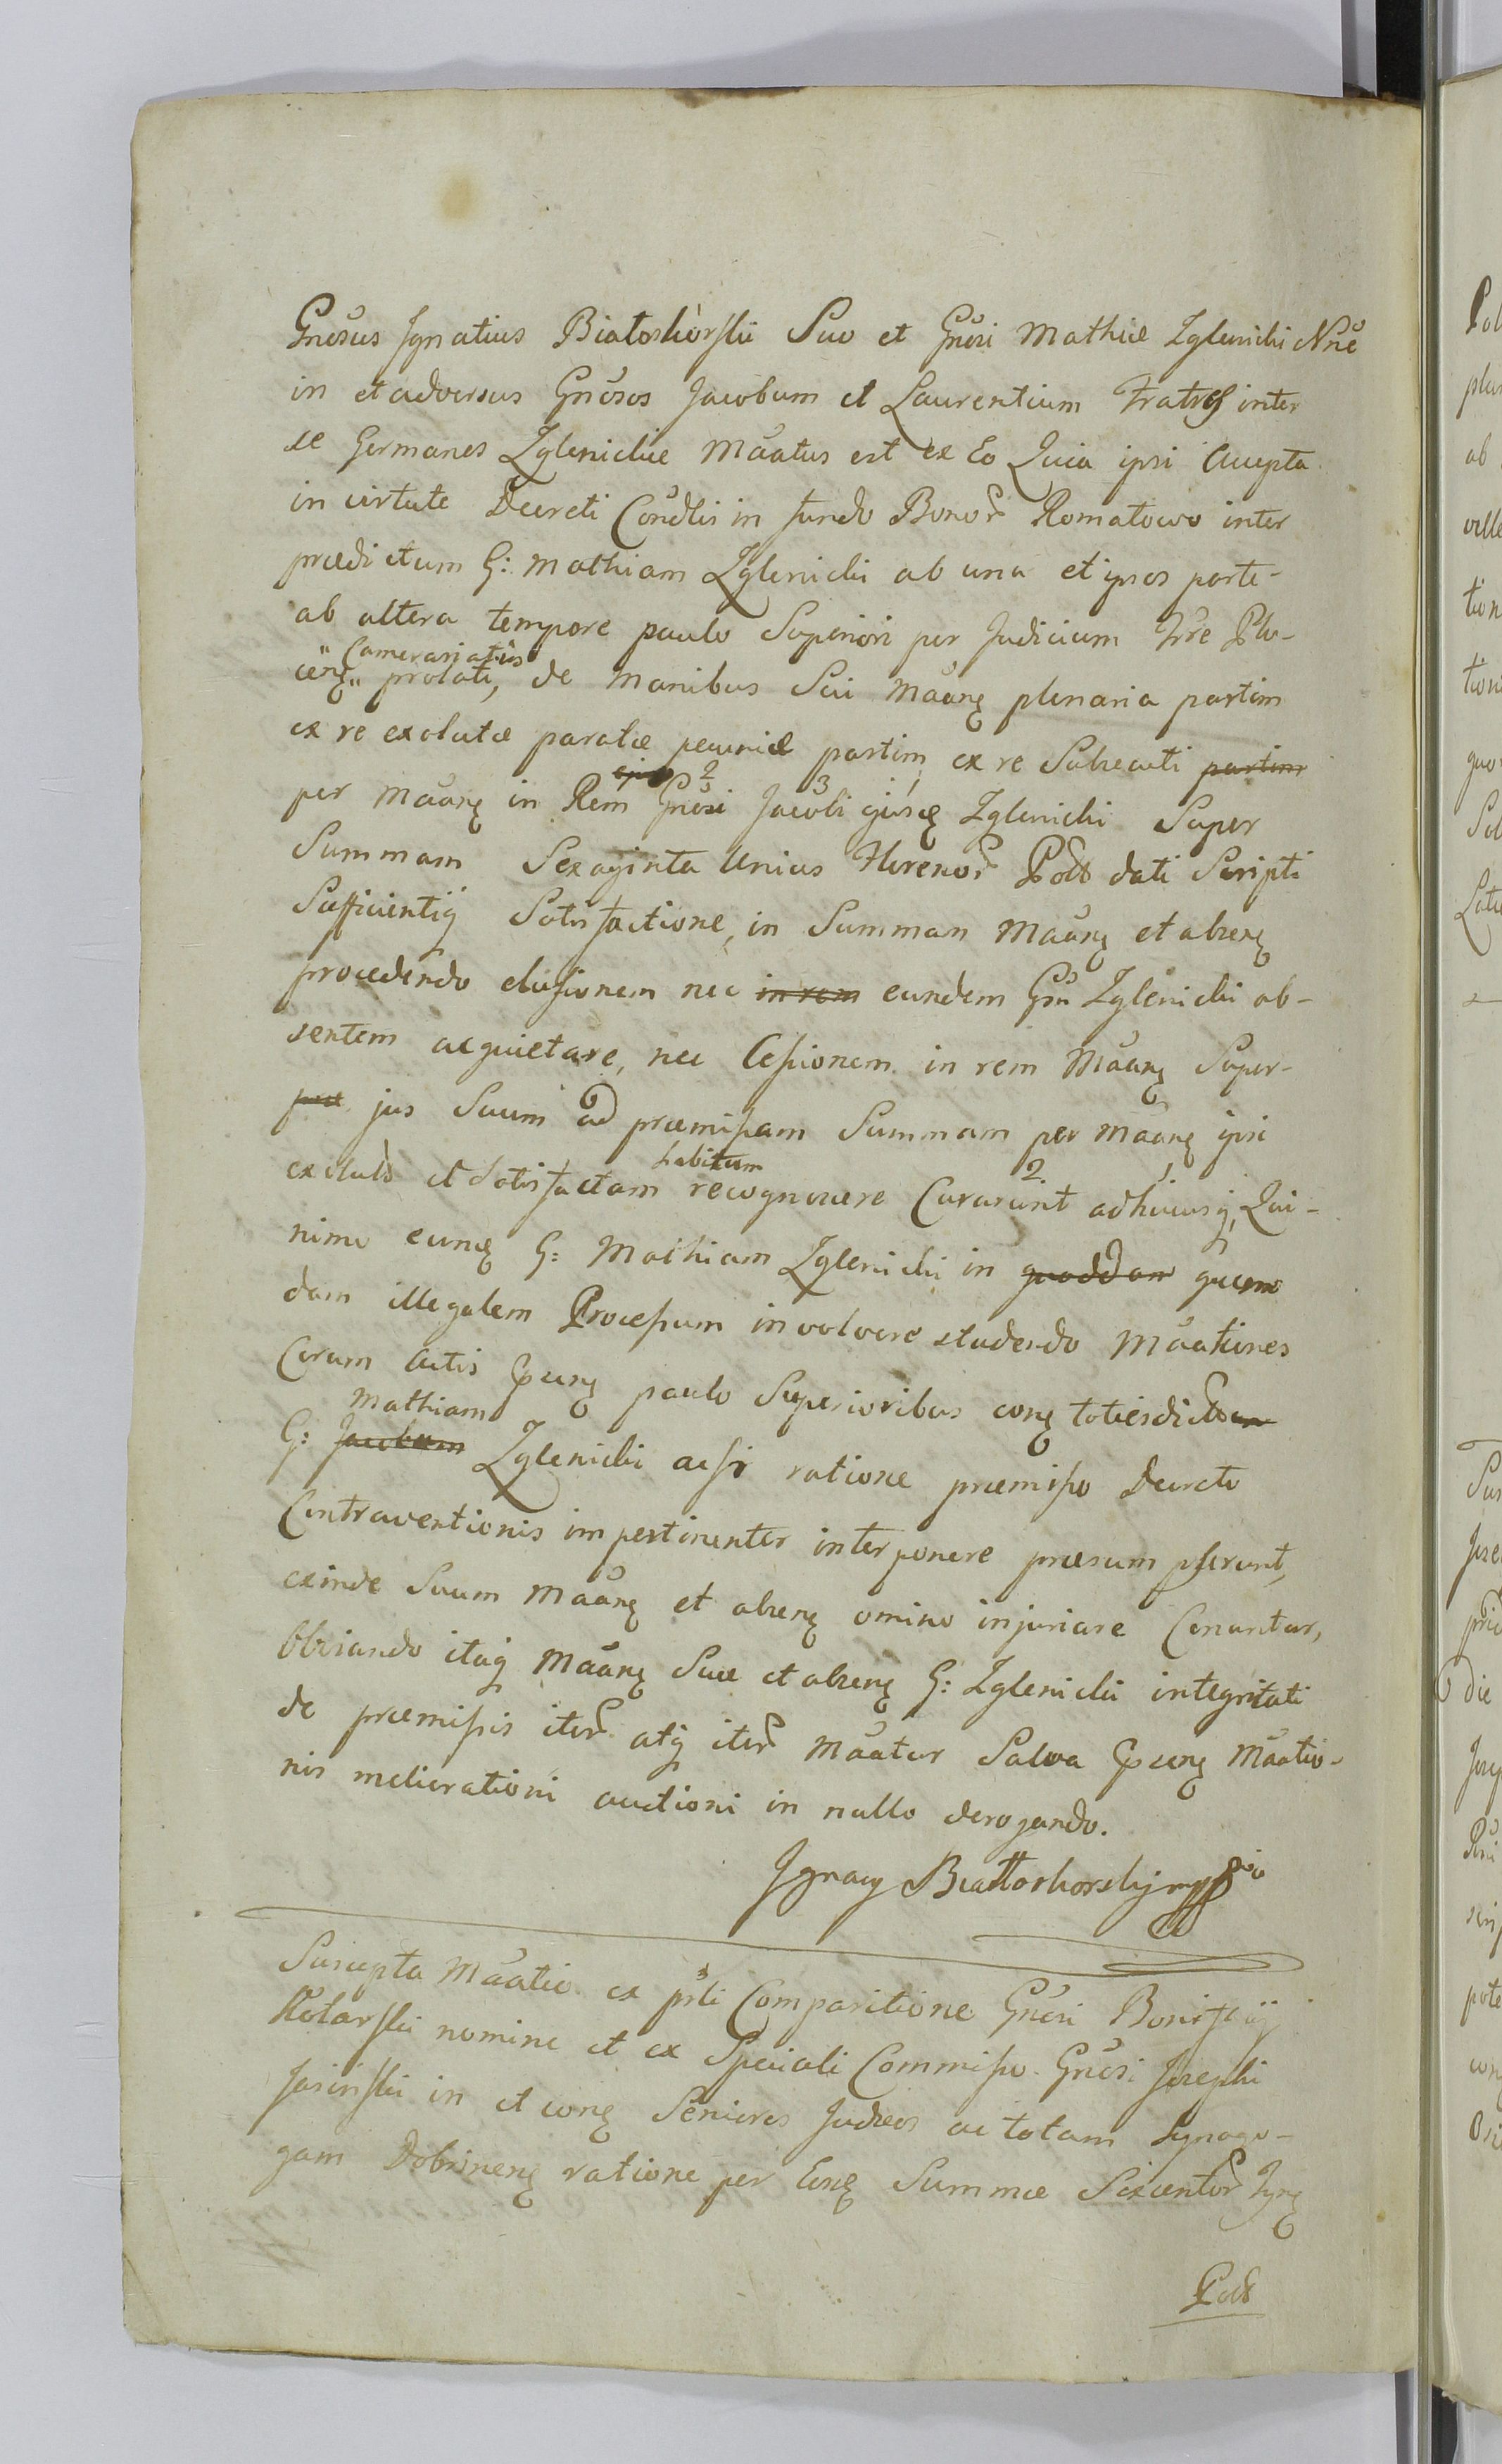 Gnosus Ignatius Białoskorski Suo et Gnosi Mathiæ Zglenicki Nne
in et adversus Gnosos Jacobum et Laurentium Fratres inter
se Germanos Zglenickie Maatus est ex Eo Quia ipsi Accepta
in virtute Decreti Condlis in fundo Bonor Romatowo inter
prædictum G: Mathiam Zglenicki ab una et ipsos parte-
ab altera tempore paulo Superiori per Judicium Trre Plo-
Camerariatus
cen prolati, de manibus Sui Maan plenaria partim
ex re exolutæ paratæ pecuniæ partim ex re Subsecuti partim
2 3 1
per Maan in Rem Gnosi Jacobi ejusq Zglenicki Super
Summam Sexaginta Unius Florenor Pol dati Scripti
Sufficientiq Satisfactione, in Summam Maan et absen
procedendo elusionem nec in rem eundem Gsn Zglenicki ab-
sentem acquietare, nec Cessionem in rem Maan Super-
jus Suum ad præmissam Summam per Maan ipsi
habitum 2 1
exoluto et Satisfactam recognoscere Curarunt adhucusq, Qui-
nimo eunq G: Mathiam Zglenicki in quoddam quem
dam illegalem Processum involvere studendo Maationes
Coram Actis psen paulo Superioribus con totiesdictum
Mathiam
G: Jacobum Zglenicki acsi ratione præmisso Decreto
Contraventionis impertinenter interponere præsumpserunt,
exinde Suum Maan et absen omino injuriare Conantur,
Obviando itaq Maan Suæ et absen G: Zglenicki integritati
de præmissis iter atq iter Maatur Salva psen Maatio-
nis meliorationi auctioni in nullo derogando.
Ignacy Białłoskorski mpp
Suscepta Maatio ex psli Comparitione Gnosi Bonifacij
Kolarski nomine et ex Speciali Commisso Gnosi Josephi
Jasinski in et con Seniores Judæos ac totam Synago-
gam Dobrinen ratione per Eos Summæ Sexcentor Tyn
Pol